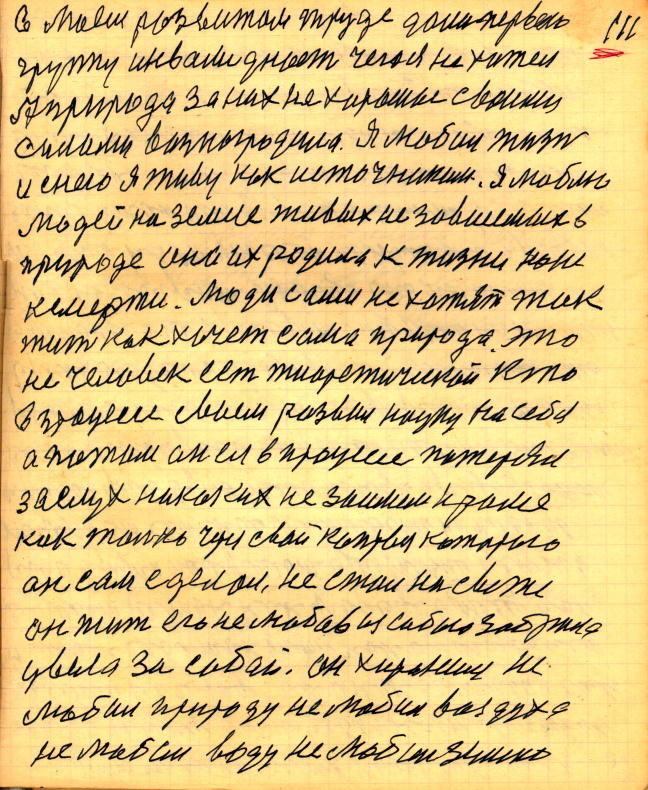 111
в моем развитом труде дали первою
группу инвалидност чего я не хотел
А природа за них не хорошое своими
силами вознаградила. Я любил жизн
и с нею я живу как источником. Я люблю
людей на земле живых не зависемых в
природе она их родила к жизни но не
к смерти. Люди сами не хотят так
жит как хочет сама природа. Это
не человек ест тиоретической кто
в процессе своем развил науку на себя
а потом он ее в процессе потерял
заслуг никаких не занимал кроме
как только чуж свой которого
он сам сделал, не стал на свете
он жит его не любов из собою забрала
увела за собой. он хорошему не
любил природу не любил воздуха
не любил воду не любил землю